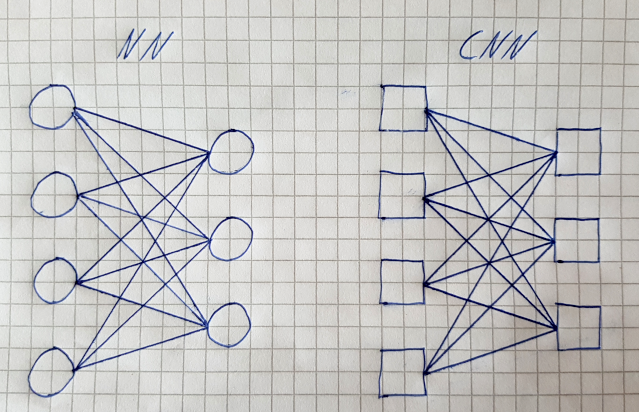 NN
CNN